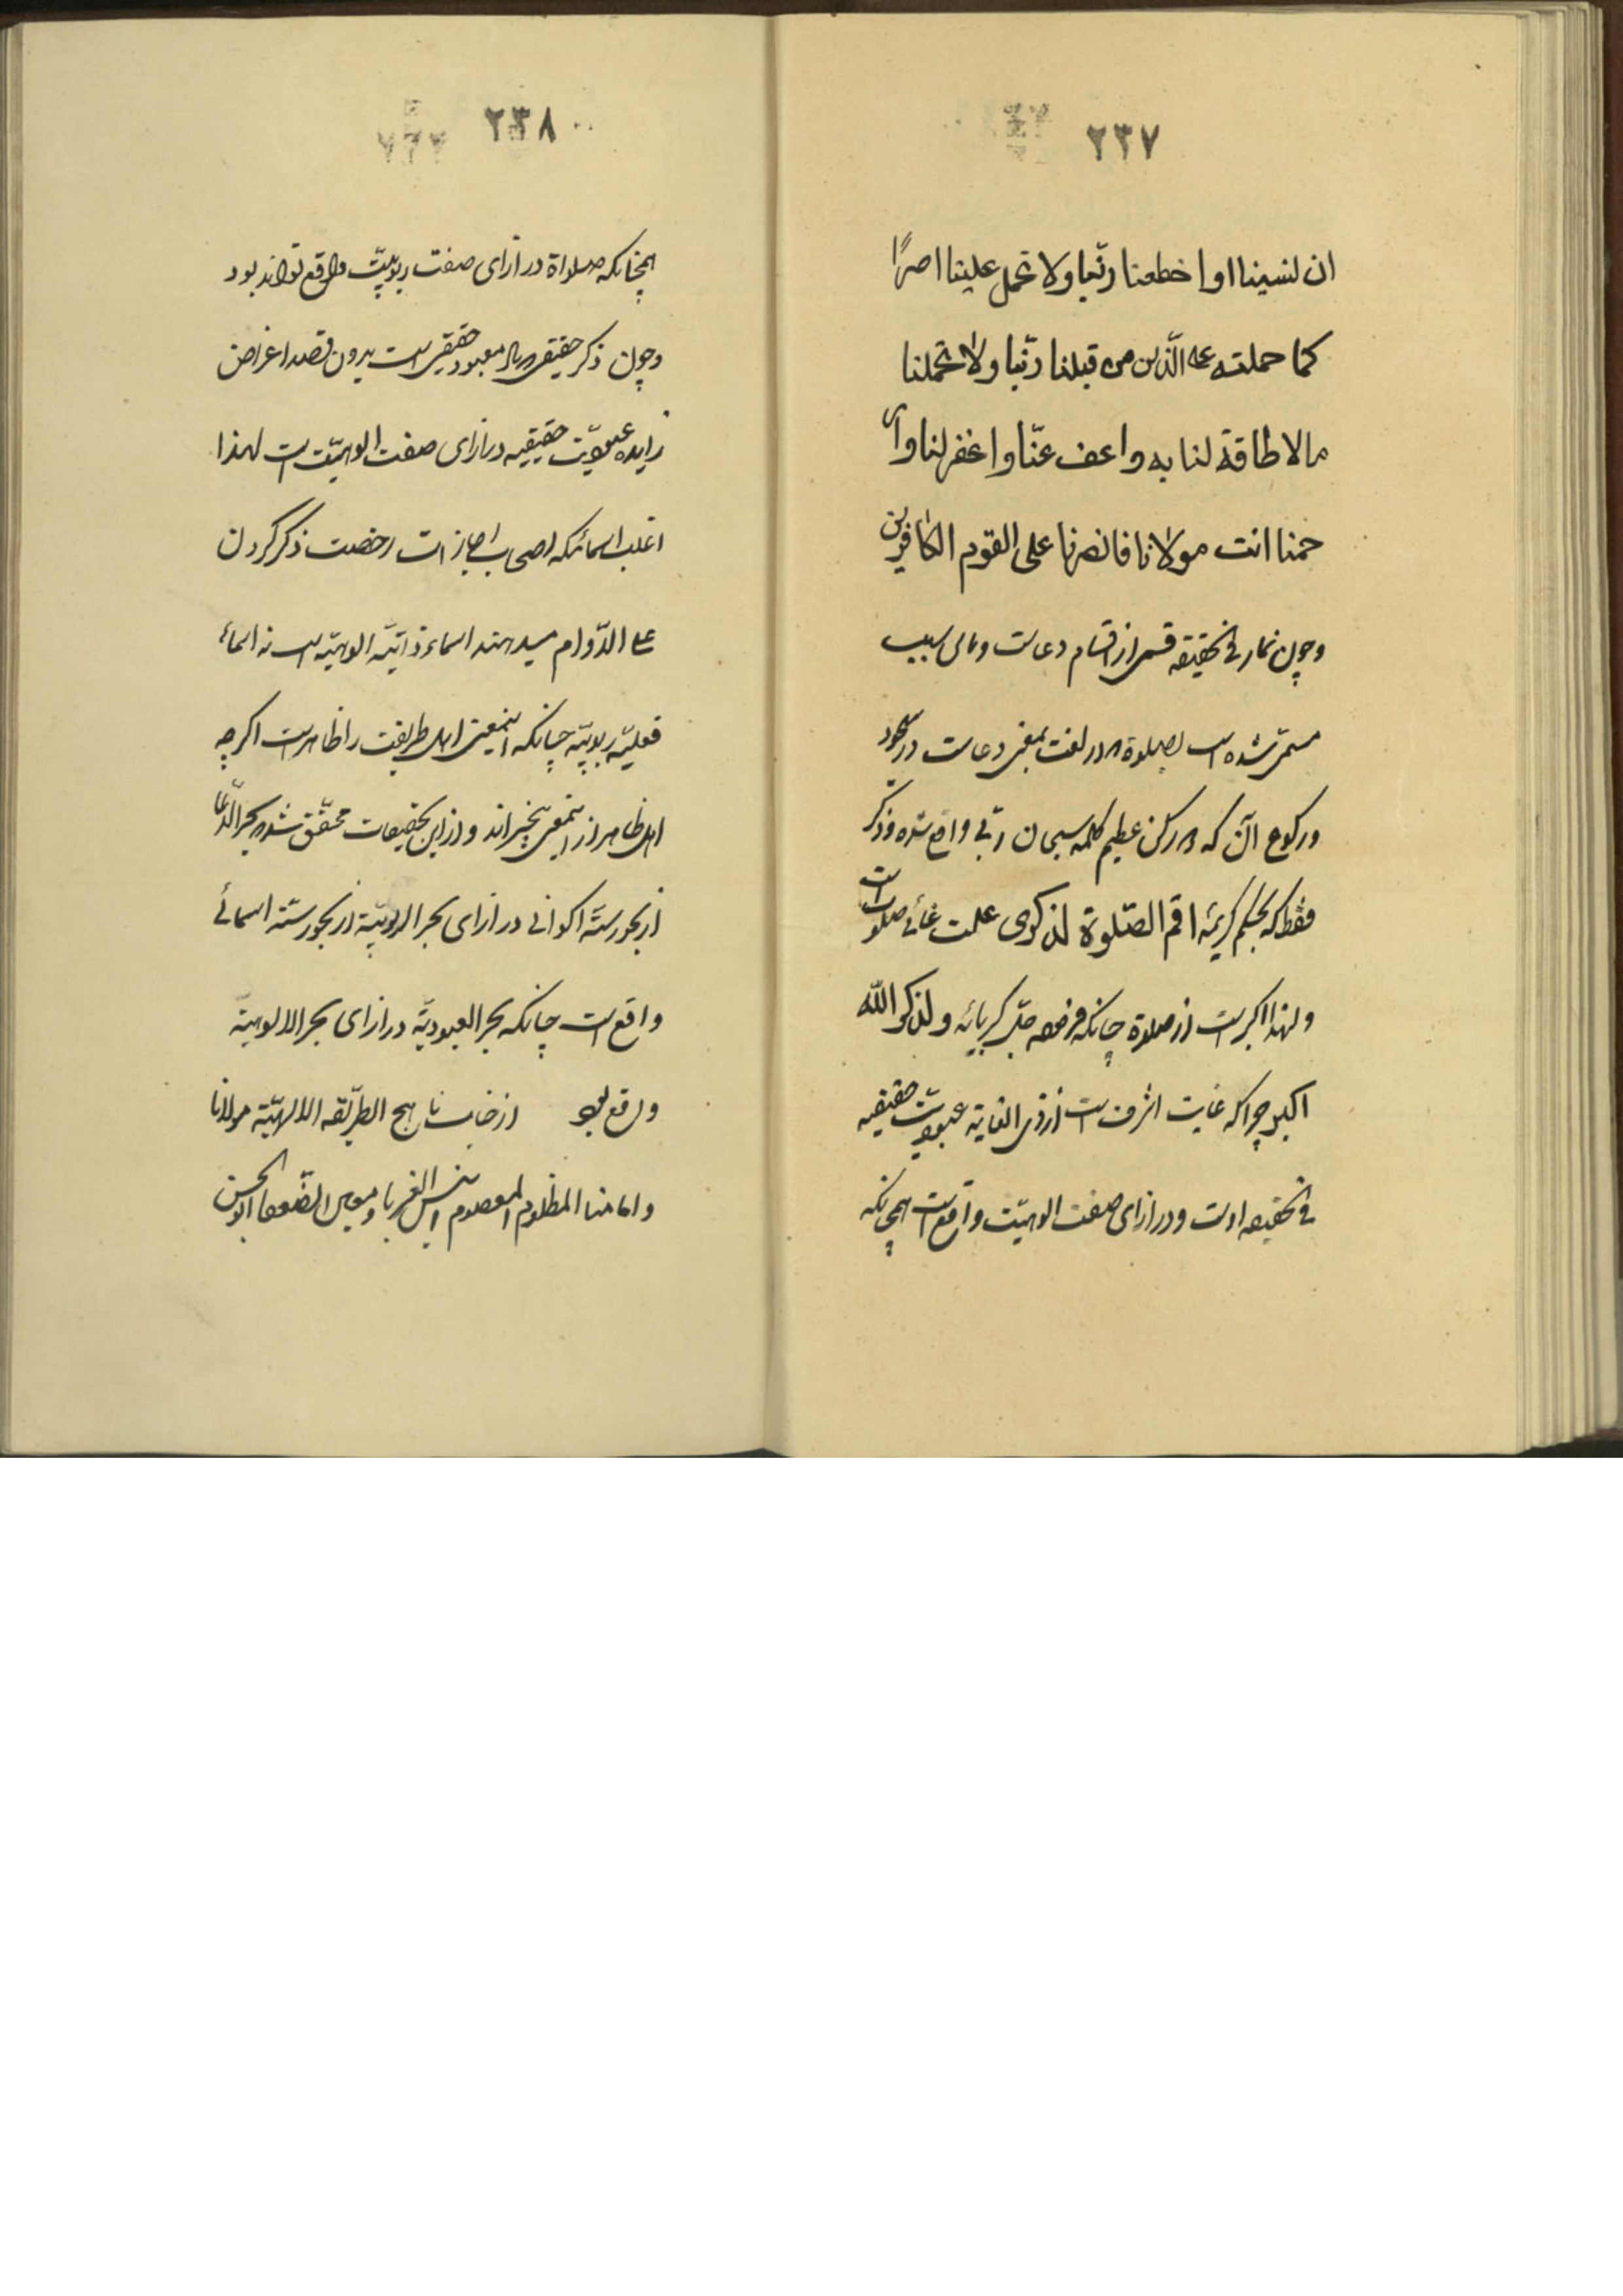 ٢٣٧
ان نسينا او اخطعنا ربّنا ولا تحمل علينا اصرًا
كما حملته على الّذين من قبلنا ربّنا ولا تحملنا
مالا طاقة لنا به واعف عنّا واغفر لنا وار
حمنا انت مولانا فانصرنا على القوم الكافرين
وچون نماز فی الحقیقه قسمی از اقسام دعاست وباین سبب
مسمّی شده است بصلوة که در لغت بمعنی دعاست در سجود
ورکوع آن که دو رکن عظیم کلمه سبحان ربّی واقع شده وذکر
فقط که بحکم کریمه اقم الصّلوة لذکری علت غائی صلوات است
ولهذا اکبر است از صلوة چنانکه فرموده جلّ کبریائه ولذکر الله
اکبر چرا که غایت اشرف است از ذی الغایة عبودیّت حقیقیه
فی الحقیقه اوست ودر ازای صفت الوهیّت واقع است همچنانکه
٢٣٨
همچنانکه صلواة در ازای صفت ربوبیّت واقع تواند بود
وچون ذکر حقیقی معبود حقیقی است بدون قصد اغراض
زایده عبودیّت حقیقیه در ازای صفت الوهیّت است لهذا
اغلب اسمائیکه اصحاب اجازات رخصت ذکر کردن
علی الدّوام میدهند اسماء ذاتیّه الوهیّه است نه اسماء
فعلیّه ربوبیّه چنانکه اینمعنی اهل طریقت را ظاهر است اگرچه
اهل ظاهر از اینمعنی بیخبراند واز این تحقیقات محقّق شد که بحر الدّعا
از بحور ستّه اکوانی در ازای بحر الربوبیّة از بحور ستّه اسمائی
واقع است چنانکه بحر العبودیّة در ازای بحر الالوهیّة
واقع بود از جناب ناهج الطریقه الالهیّة مولانا
وامامنا المظلوم المعصوم انیس الغربا ومعین الضّعفا ابو الحسن